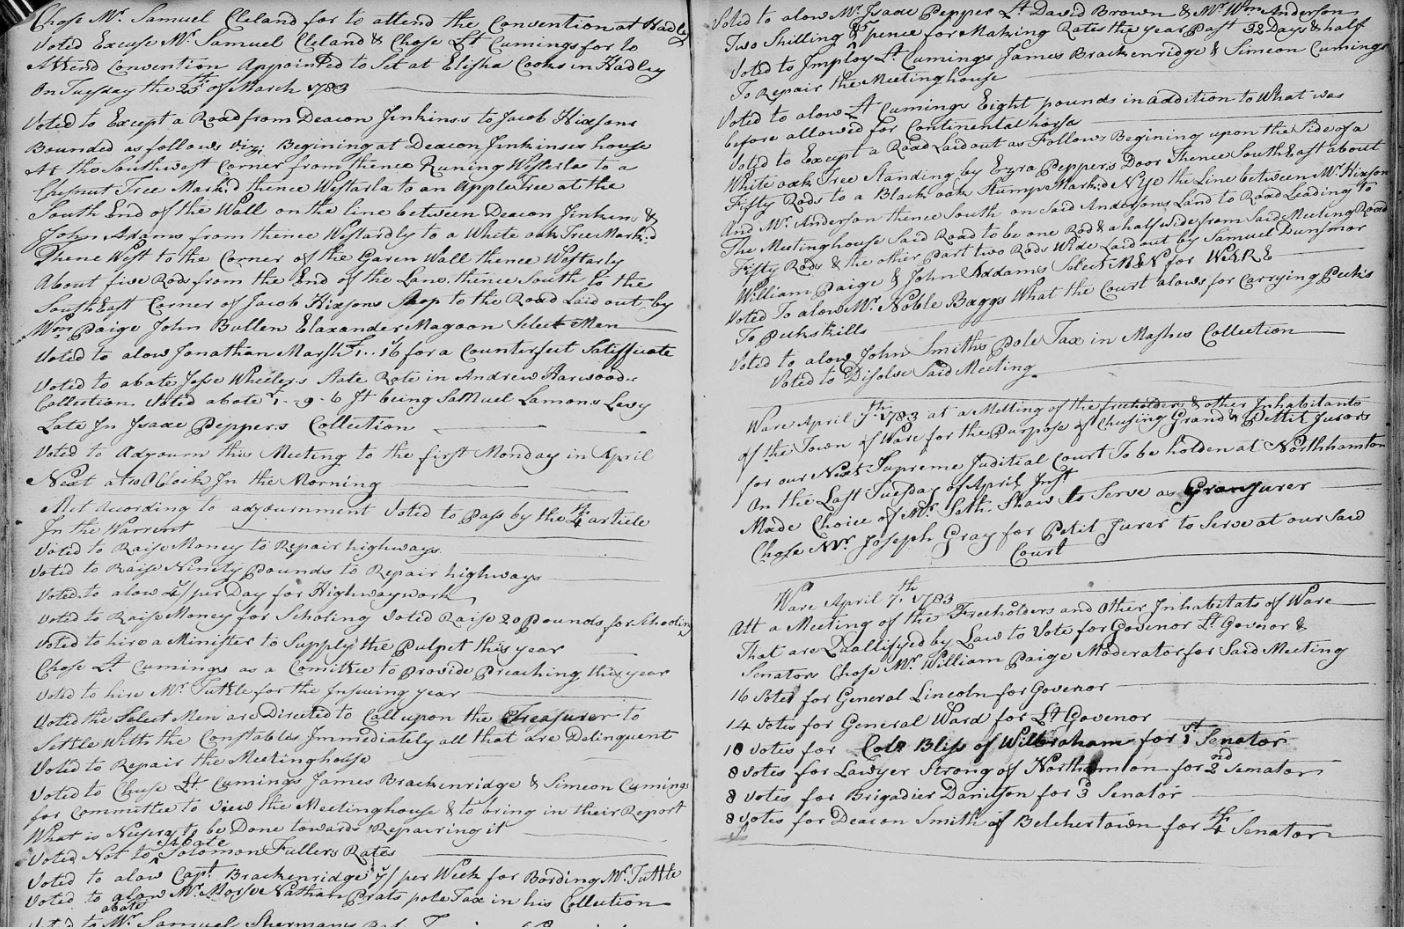 Chose Mr. Samuel Cleland for to attend the Convention at Hadley
Voted Excuse Mr. Samuel Cleland & Chose Lt Cumings for to
Attend Convention Appointed to Set at Elisha Cooks in Hadley
On Tuesday the 25th of March 1783
Voted to Except a Road from Deacon Jinkinss to Jacob Hixsons
Bounded as follows viz; Begining at Deacon Jinkinses house
At the Southwest Corner from thence Runing Westerla to a
Chesnut Tree Markd thence Westarla to an Apple Tree at the
South End of the Wall on the line between Deacon Jinkins &
John Adams from thence Westardly to a White oak Tree Markd
Thence West to the Corner of the Garen Wall thence Westarly
About five Rods from the End of the Lane thence South to the
South East Corner of Jacob Hixsons Shop to the Road Laid out by
Wm Paige John Bullen Elaxander Magoon Select Men
Voted to alow Jonathan Marsh £1..16 for a Counterfeit
Voted to abate Jesse Wheelers State Rate in Andrew Harwoods
Collection Voted abate 1-9-6 It being Samuel Lamons Levy
Late In Isaac Peppers Collection
Voted to Adjourn this Meeting to the first Monday in April
Next at 10 Clock In the Morning
Met Acording to adjournment Voted to Pass by the 4th article
In the Warrent
Voted to Raise Money to Repair highways
Voted to Raise Ninety Pounds to Repair highways
Voted to alow per Day for Highway work
Voted to Raise Money for Scholing Voted Raise 20 Pounds for Scholing
Voted to hire a Minister to Supply the Pulpet this year
Chose Lt Cumings as a Comittee to Provide Preaching this year
Voted to hire Mr Tuttle for the Insuing year
Voted the Select Men are Directed to Call upon the Treasurer to
Settle With the Constables Immediately all that are Delinquent
Voted to Repair the Meetinghouse
Voted to Chuse Lt Cumings James Brackenridge & Simeon Cumings
for Committe to view the Meetinghouse & to bring in their Report
What is to be Done towards Repairing it
Voted Not to Abate Solomon Fullers Rates
Voted to alow Capt Brackenridge 7/ per Week for Bording Mr Tuttle
Voted to abate Mr. Morse Nathan Prats pole Tax in his Collection
Voted to Mr. Samuel Shermans
Voted to alow Mr Isaac Pepper Lt David Brown & Mr Wm Anderson
Two Shilling & pence for Making Rates the year Past 32 Days & half
Voted to Imploy Lt Cumings James Brackenridge & Simeon Cumings
To Repair the Meetinghouse
Voted to alow Lt Cumings Eight pounds in addition to What was
before allowed for Continental horse
Voted to Except a Road Laid out as Follows Begining upon the Side of a
White oak Tree Standing by Ezra Peppers Door Thence South East about
Fifty Rods to a Black oak Stump Markd N Ye the Line between Mr Hixson
And Mr Anderson thence South on Said Andersons Land to Road Leading to
The Meetinghouse Said Road to be one Rod & a half Wide from Said Meeting Road
Fifty Rods & the other part two Rods Wide Laid out by Samuel Dunsmor
William Paige & John Addams Select MEN for WARE
Voted To alow Mr. Noble Baggs What the Court alows for Carrying Packs
To Peckskills
Voted to alow John Smiths Pole Tax in Collection
Voted to Disolve Said Meeting
Ware April 7th 1783 at a Meeting of the freeholders & other Inhabitants
of the Town of Ware for the Purpose of Chusing Grand & Pettit Jurors
for our Next Supreme Juditial Court To be holden at Northhamton
On the Last Tuesday of April Inst
Made Choice of Mr. Seth Shaw to Serve as Granjurer
Chose Mr Joseph Gray for Petit Jurer to Serve at our Said
Court
Ware April 7th 1783
Att a Meeting of the Freeholders and Other Inhabitats of Ware
That are Quallifyed by Law to Vote for Govenor Lt Govenor &
Senators Chose Mr. William Paige Moderator for Said Meeting
16 Votes for General Lincoln for Govenor
14 Votes for General Ward for Lt Govenor
10 Votes for Coln Bliss of Wilbraham for 1st Senator
8 Votes for Lawyer Strong of Northamton for 2nd Senator
8 Votes for Brigadier Danilson for 3d Senator
8 Votes for Deacon Smith of Belchertown for 4th Senator